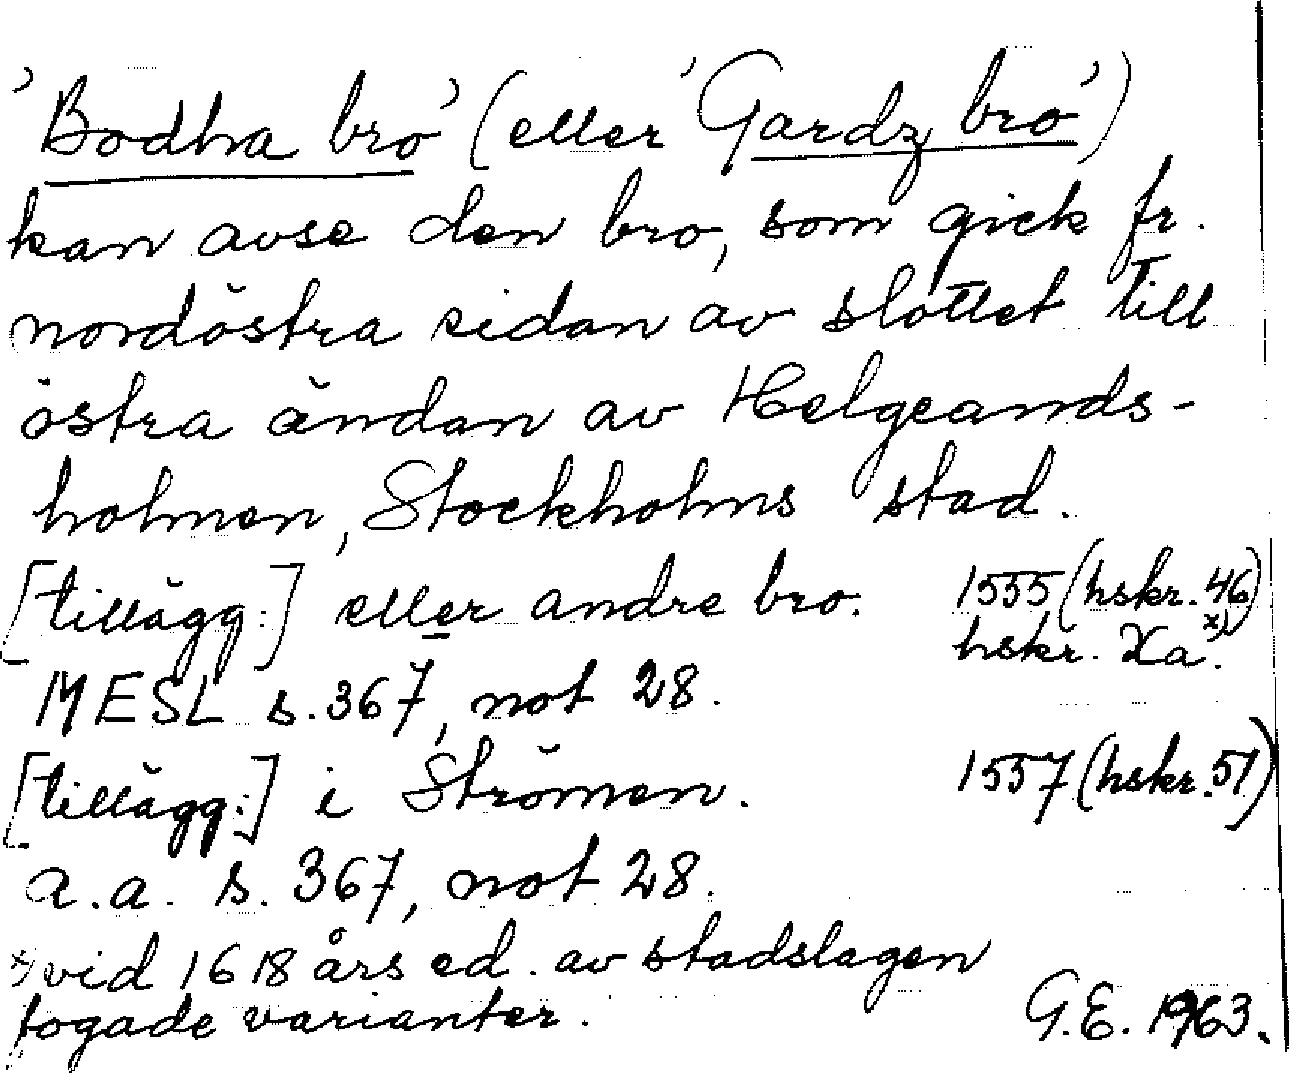 'Bodha bro' (eller 'Gardz bro')
kan avse den bro, som gick fr.
nordöstra sidan av slottet till
östra ändan av Helgeands-
holmen, Stockholms stad.
[tillägg:] eller andre bro. 1555 (hskr. 46)
hskr. Xa. x)
MESL s. 367, not 28.
[tillägg:] i Strömen. 1557 (hskr. 51)
a.a. s. 367, not 28.
x) vid 1618 års ed. av stadslagen
fogade varianter. G.E. 1963.